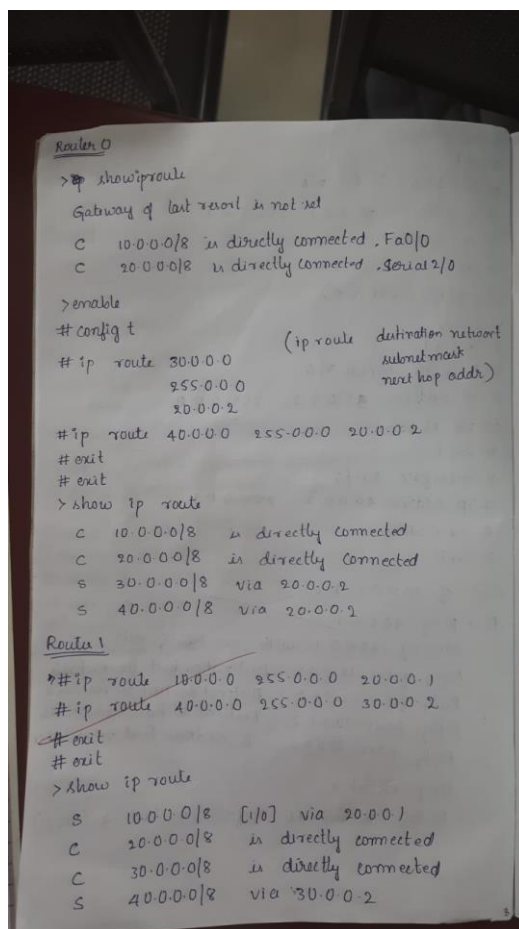 Router 0
> show ip route
Gateway of last resort is not set
C 10.0.0.0/8 is directly connected, Fa0/0
C 20.0.0.0/8 is directly connected, Serial2/0
> enable
# config t
# ip route 30.0.0.0 (ip route destination network
255.0.0.0 subnet mask
20.0.0.2 next hop addr)
# ip route 40.0.0.0 255.0.0.0 20.0.0.2
# exit
# exit
> show ip route
C 10.0.0.0/8 is directly connected
C 20.0.0.0/8 is directly connected
S 30.0.0.0/8 via 20.0.0.2
S 40.0.0.0/8 via 20.0.0.2
Router 1
# ip route 10.0.0.0 255.0.0.0 20.0.0.1
# ip route 40.0.0.0 255.0.0.0 30.0.0.2
# exit
# exit
> show ip route
S 10.0.0.0/8 [1/0] via 20.0.0.1
C 20.0.0.0/8 is directly connected
C 30.0.0.0/8 is directly connected
S 40.0.0.0/8 via 30.0.0.2
3